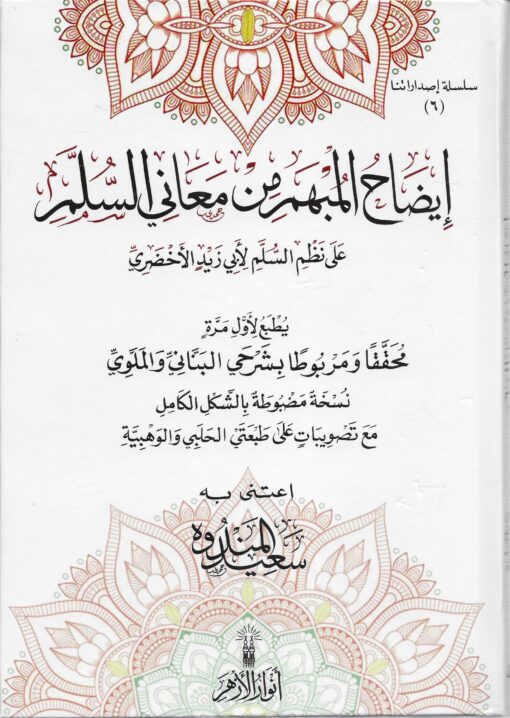 سلسلة إصداراتنا
(٦)
إِيضَاحُ المُبْهَمِ مِنْ مَعَانِي السُّلَّمِ
عَلَى نَظْمِ السُّلَّمِ لِأَبِي زَيْدٍ الأَخْضَرِيِّ
يُطْبَعُ لِأَوَّلِ مَرَّةٍ
مُحَقَّقًا وَمَرْبُوطًا بِشَرْحَيِ البَنَّانِيِّ وَالمَلَّوِيِّ
نُسْخَةٌ مَضْبُوطَةٌ بِالشَّكْلِ الكَامِلِ
مَعَ تَصْوِيبَاتٍ عَلَى طَبْعَتَيِ الحَلَبِي وَالوَهْبِيَّةِ
اعتنى به
سَعِيد المَنْدُوه
أنوار الأزهر